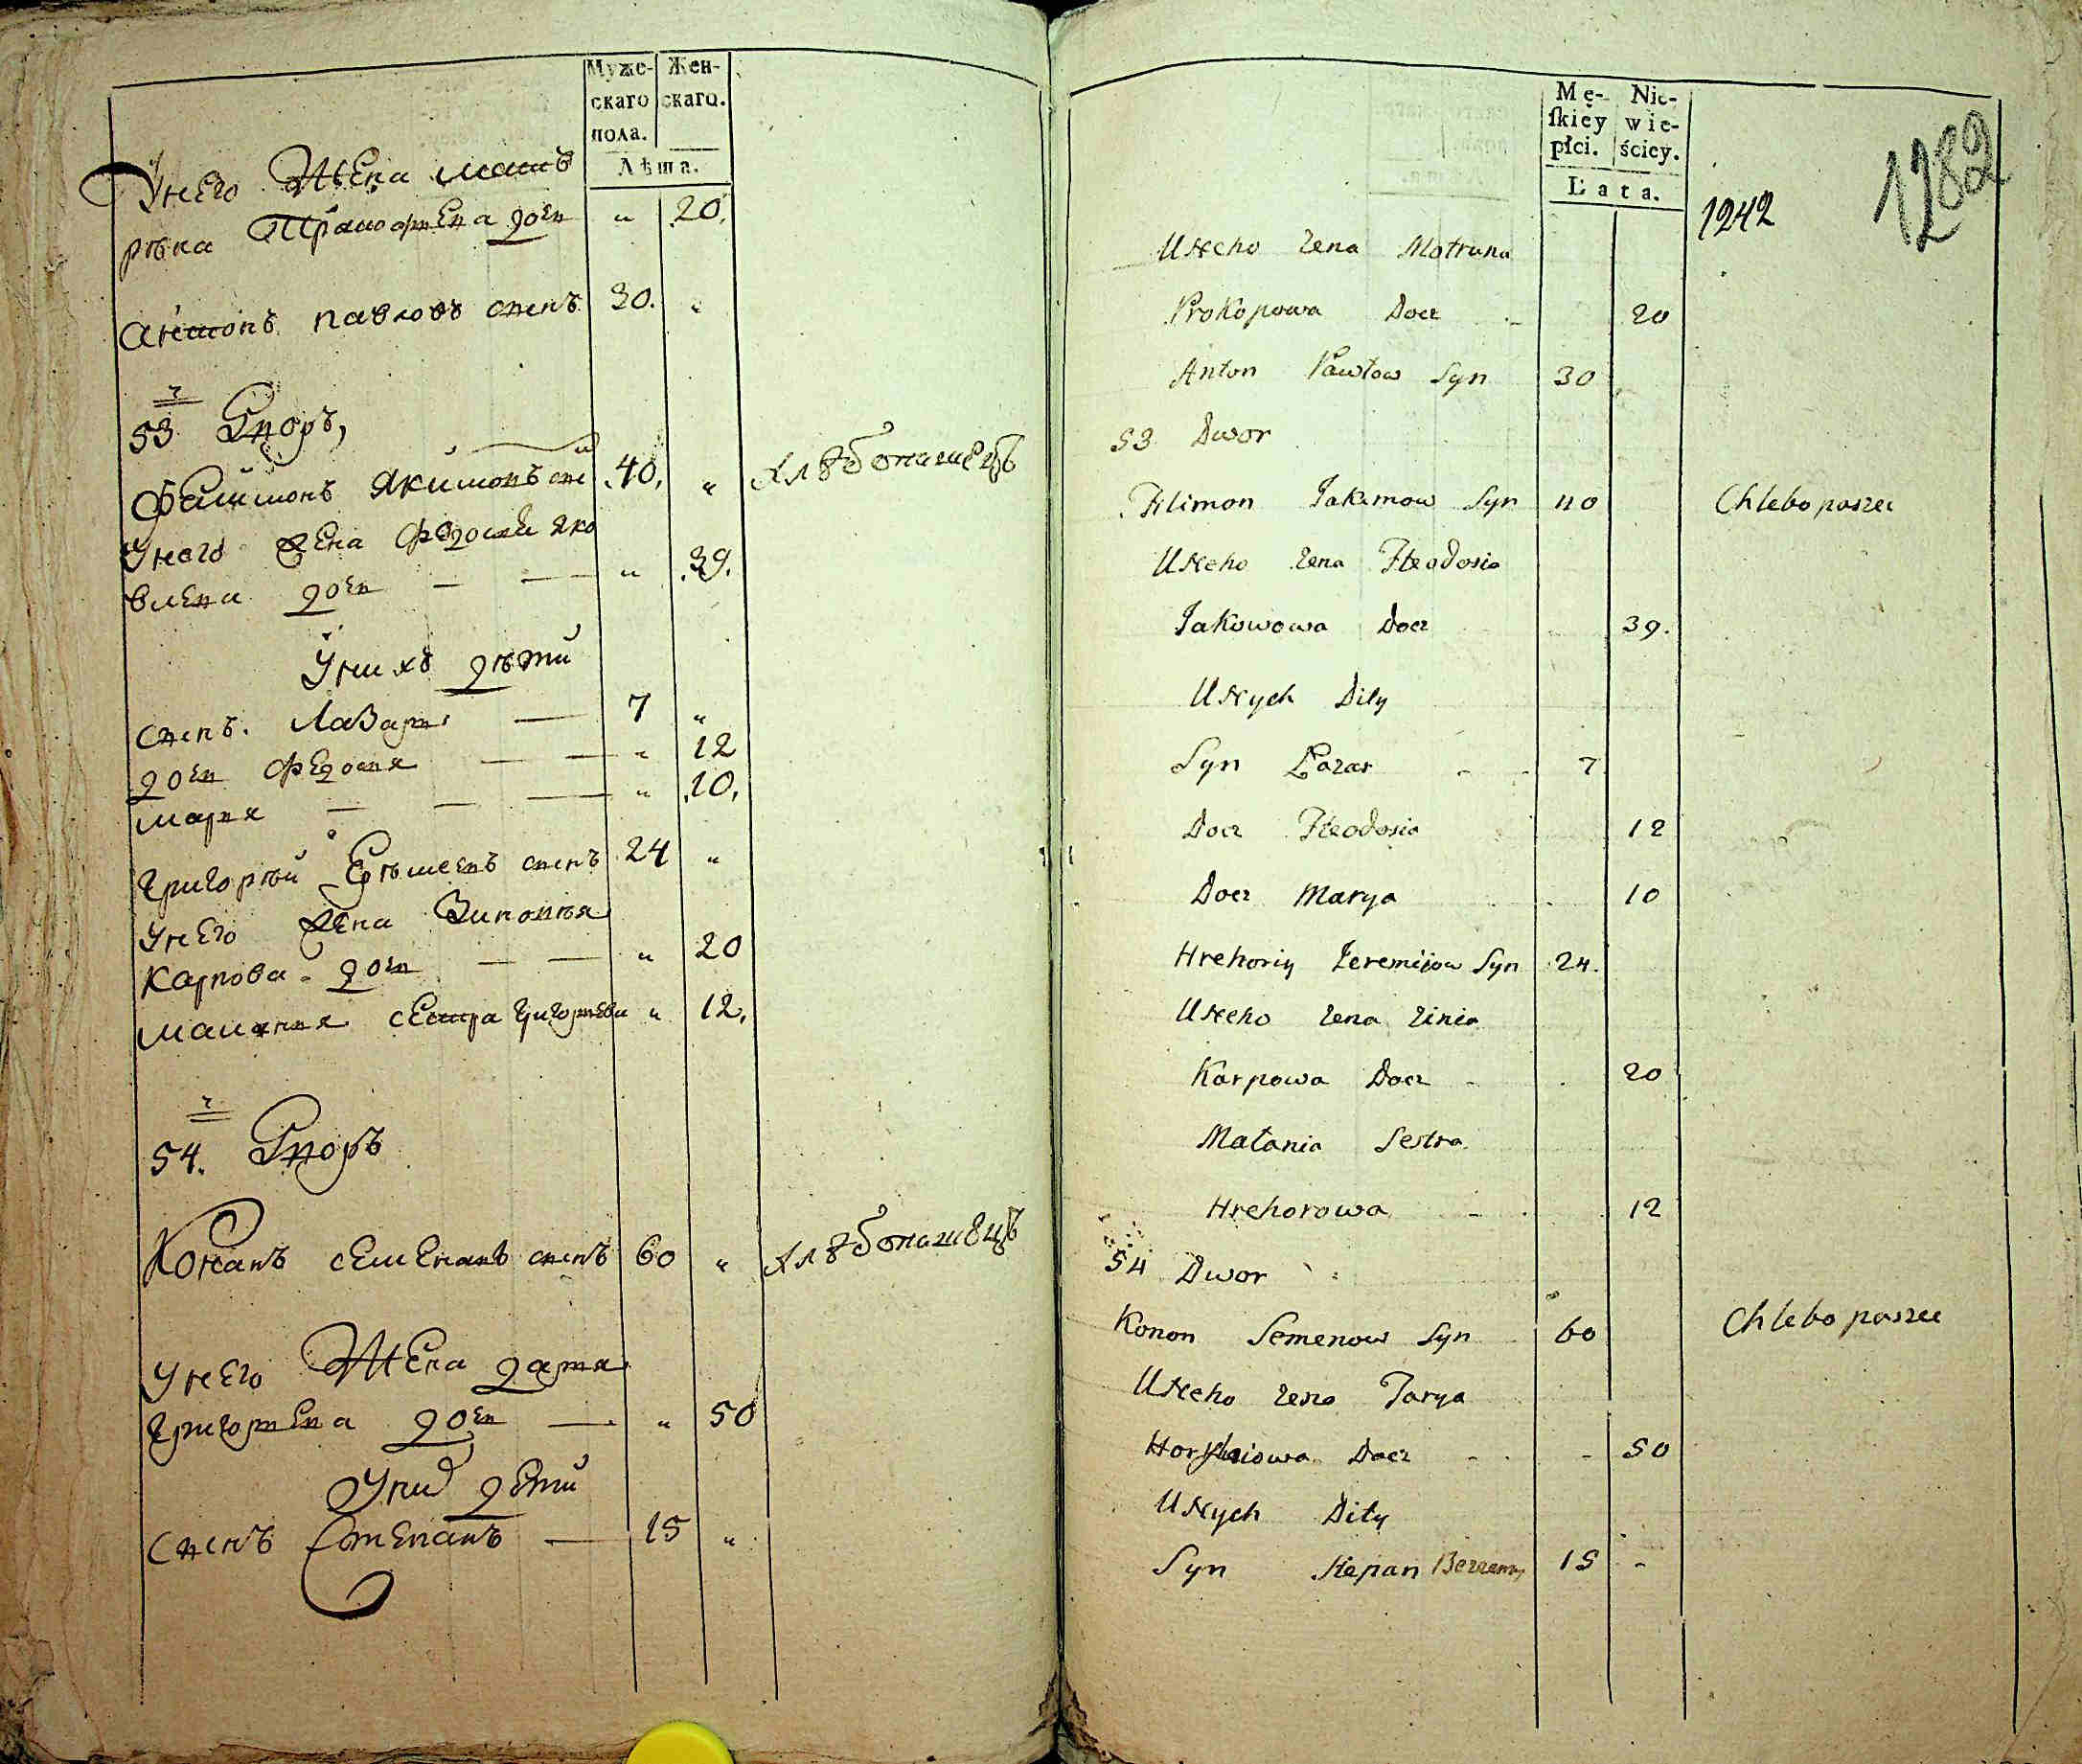 Муже- Жен-
скаго скаго.
пола.
Лѣта.
Унего Жена мот
рѣна Прокофиева доч „ 20.
Антонъ павловъ синъ 30. „
53 Дворъ,
Филимонъ Якимовъ син 40. „ Хлѣбопашецъ
Унего Жена Федосия Яко
влева доч — — „ 39.
Унихъ дѣти
синъ. Лазарь — 7 „
доч Федосия — — „ 12
мария — — — „ 10.
Григорий Еремеевъ синъ 24 „
Унего Жена Зиновия
Карпова доч — — „ 20
малания сестра Григориева „ 12.
54. Дворъ
Кононъ семеновъ синъ 60 „ Хлѣбопашецъ
Унего Жена дария
Григориева доч — „ 50
Уних дети
синъ Степанъ — 15 „
Mę- Nie-
ſkiey wie-
płci. ściey.
Lata.
1242 1282
U Neho zena Motruna
Prokopowa Docz 20
Anton Pawłow Syn 30
53 Dwor
Filimon Jakimow Syn 40 Chlebopaszec
U Neho zena Fteodosia
Jakowowa Docz 39.
U Nych Dity
Syn Łazar 7
Docz Fteodosia 12
Docz Marya 10
Hrehoriy Jeremijow Syn 24.
U Neho zena Zinia
Karpowa Docz 20
Małania Sestra
Hrehorowa 12
54 Dwor
Konon Semenow Syn 60 Chlebopaszec
U Neho zena Darya
Docz 50
U Nych Dity
Syn Stepan 15 -